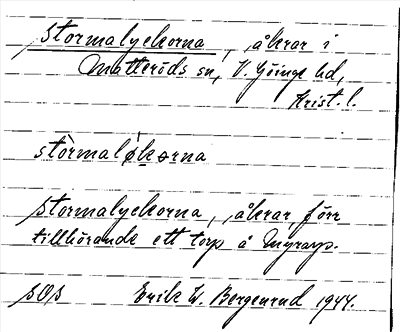 Stormalyckorna, åkrar i
Matteröds sn, V. Göinge hd,
Krist. l.
stòrmaløkorna
Stormalyckorna, åkrar, förr
tillhörande ett torp å Myrarp.
SOS Erik W. Bergenrud 1944.